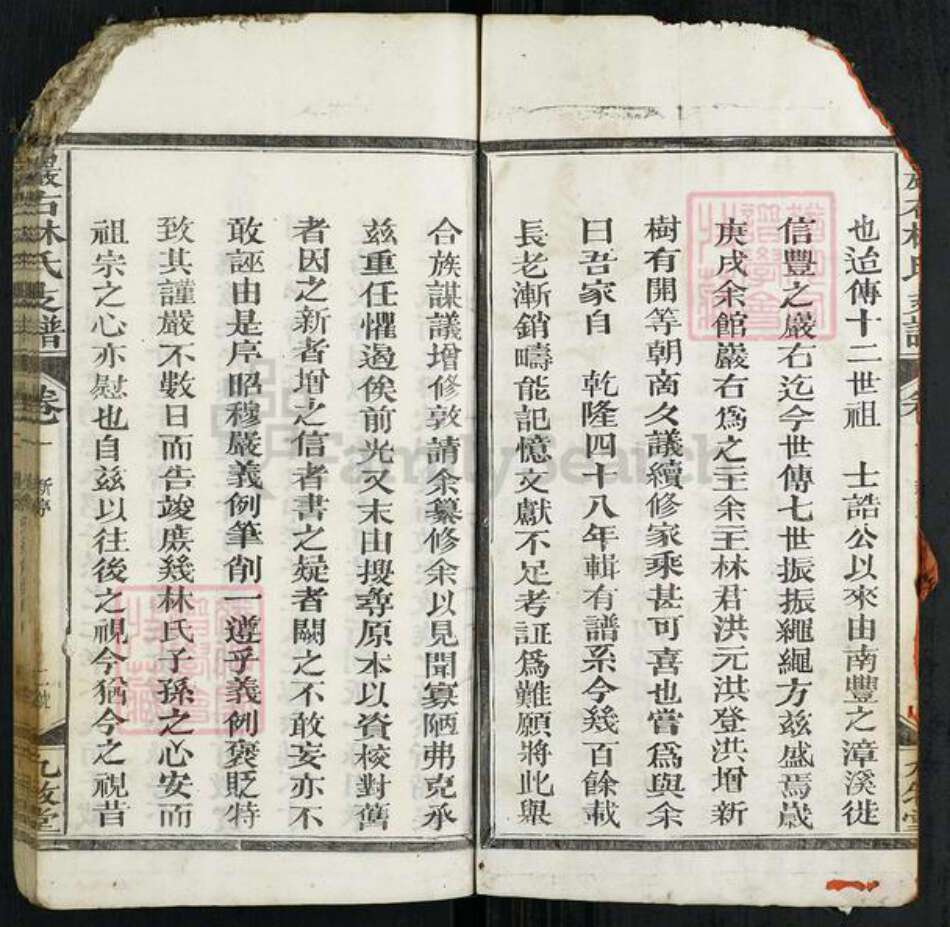 也迨傳十二世祖 士誥公以來由南豐之漳溪徙
信豐之巖右迄今世傳七世振振繩繩方茲盛焉歲
庚戌余館巖右為之主余主林君洪元洪登洪增新
樹有開等朝商久議續修家乘甚可喜也嘗為與余
曰吾家自 乾隆四十八年輯有譜系今幾百餘載
長老漸銷疇能記憶文獻不足考証為難願將此舉
合族謀議增修敦請余纂修余以見聞寡陋弗克承
茲重任懼遏俟前光又末由搜尋原本以資核對舊
者因之新者增之信者書之疑者闕之不敢妄亦不
敢誣由是序昭穆嚴義例筆削一遵乎義例褒貶特
致其謹嚴不數日而告竣庶幾林氏子孫之心安而
祖宗之心亦慰也自茲以往後之視今猶今之視昔
巖右林氏支譜
卷一
新序
二號
九牧堂
FamilySearch